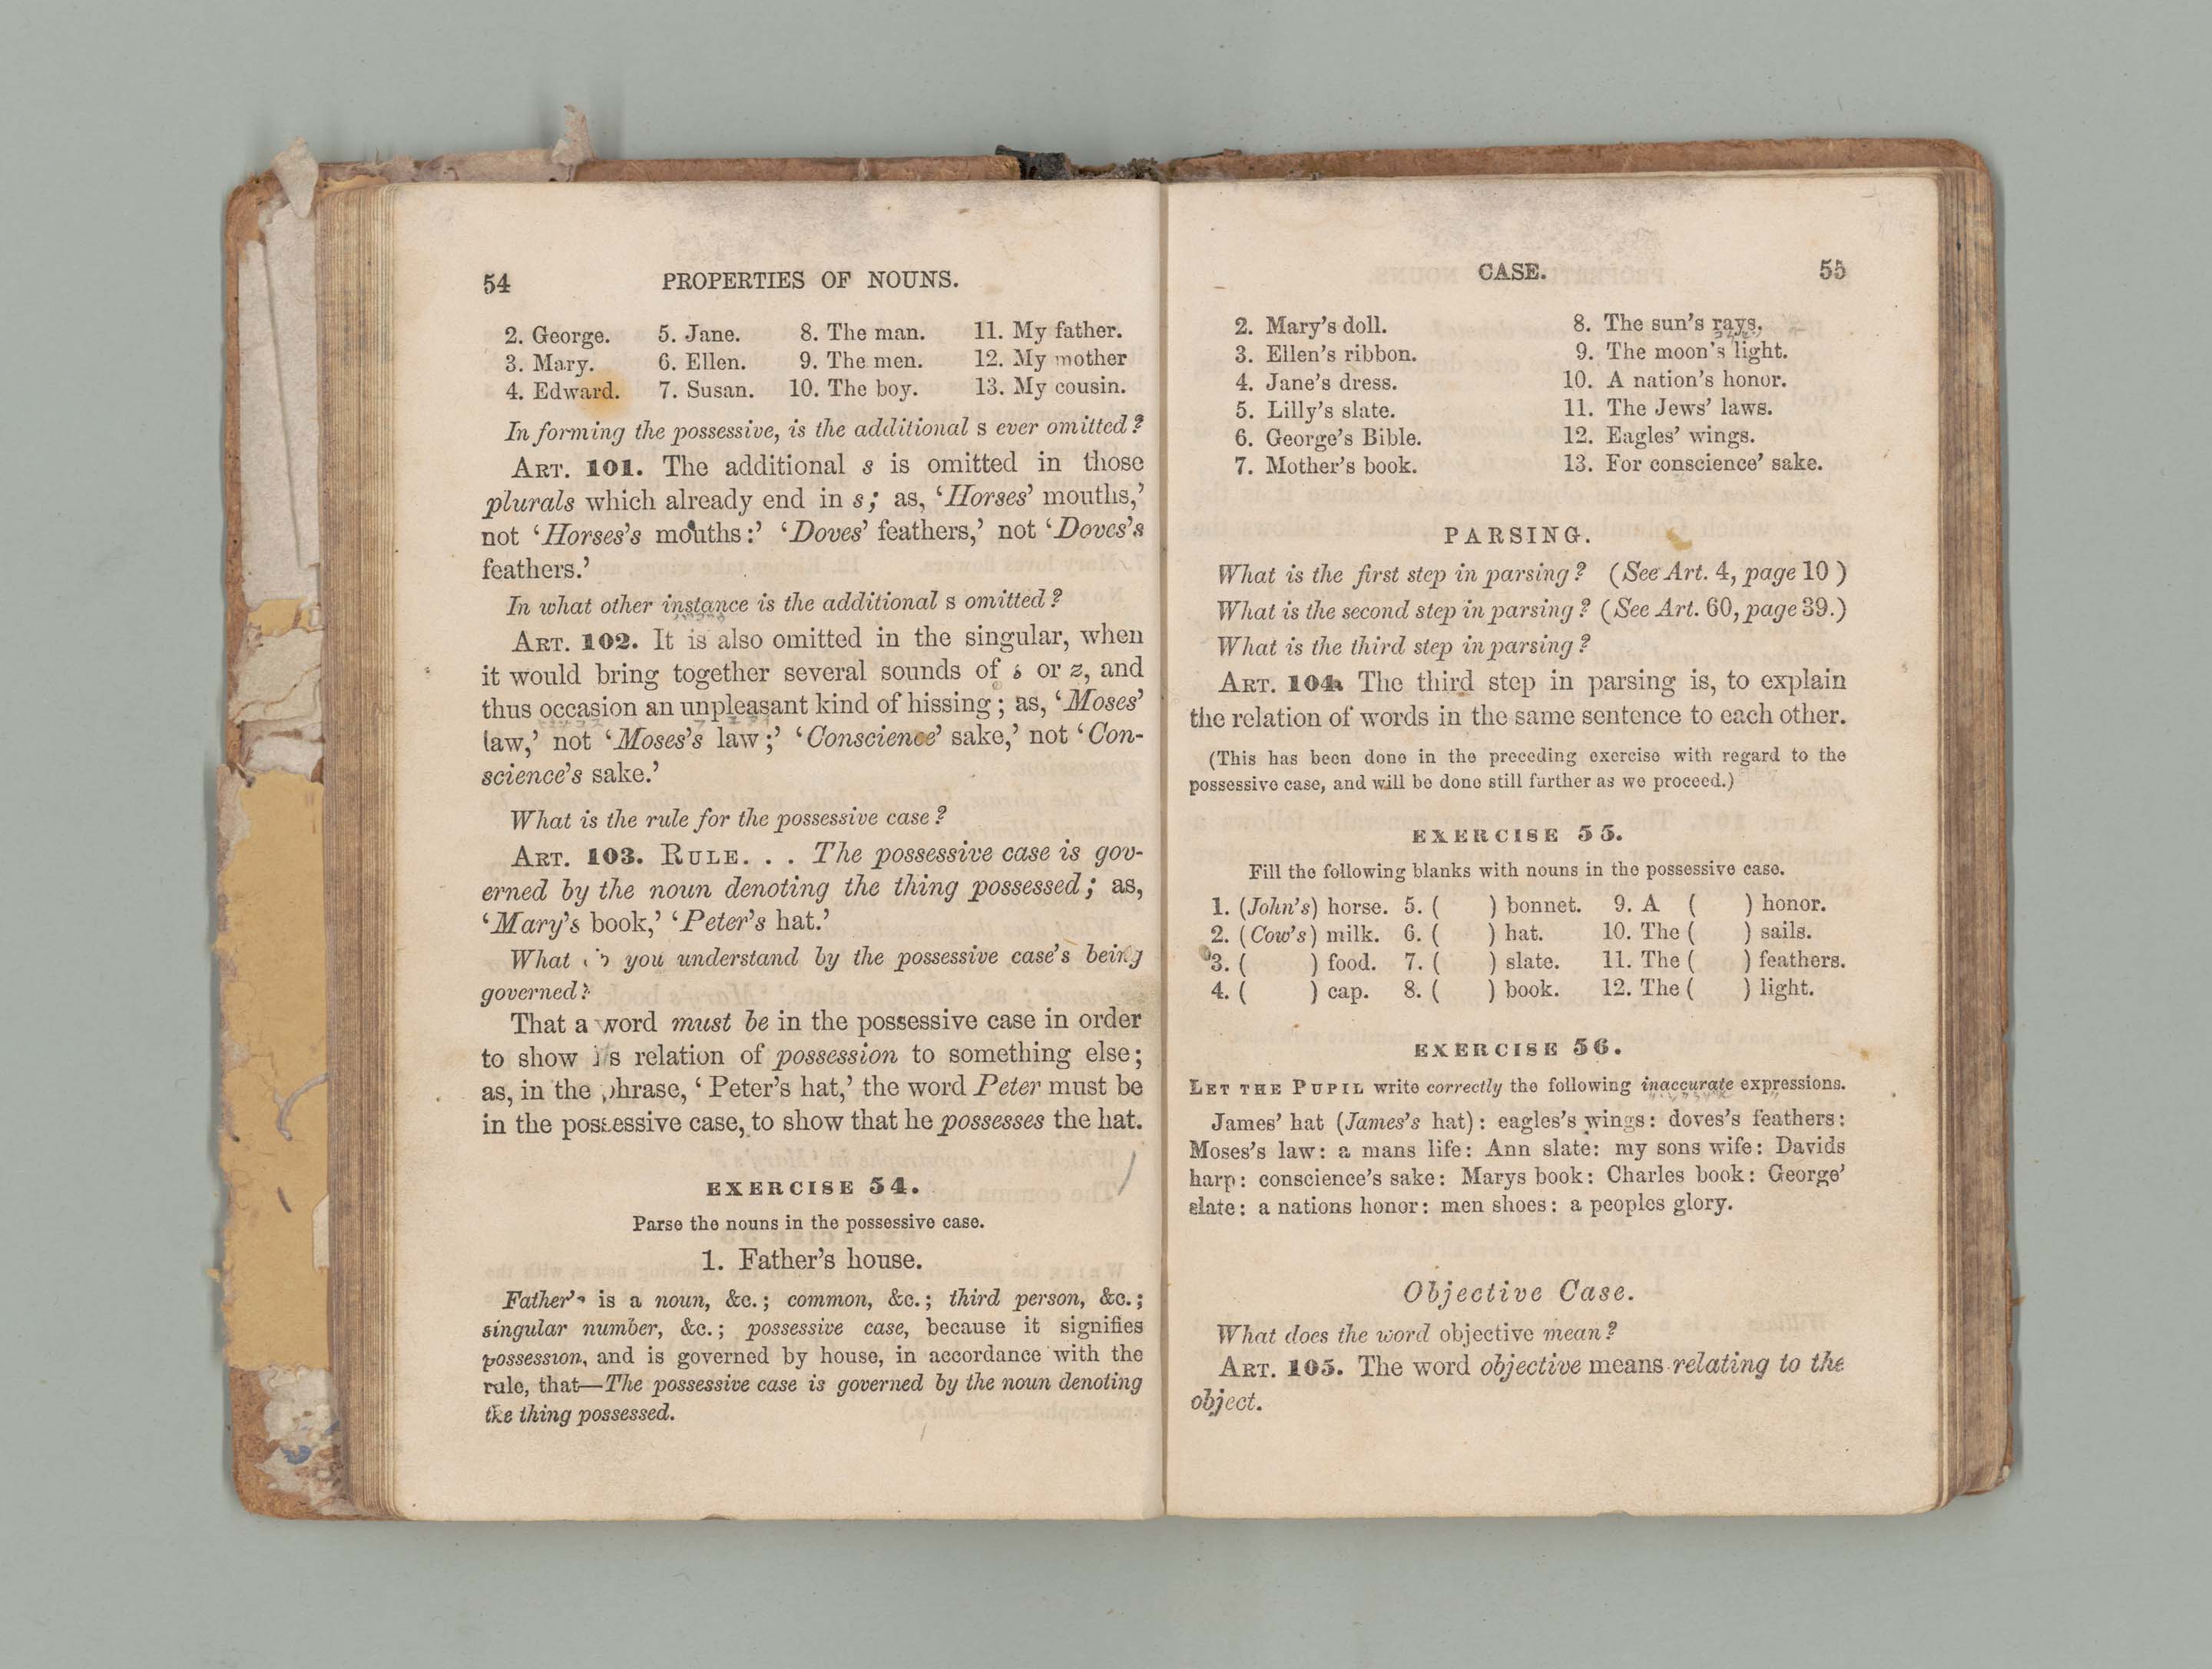 54 PROPERTIES OF NOUNS.
2. George. 5. Jane. 8. The man. 11. My father.
3. Mary. 6. Ellen. 9. The men. 12. My mother
4. Edward. 7. Susan. 10. The boy. 13. My cousin.
In forming the possessive, is the additional s ever omitted?
ART. 101. The additional s is omitted in those
plurals which already end in s; as, ‘Horses’ mouths,’
not ‘Horses's mouths:’ ‘Doves’ feathers,’ not ‘Doves's
feathers.’
In what other instance is the additional s omitted?
ART. 102. It is also omitted in the singular, when
it would bring together several sounds of s or z, and
thus occasion an unpleasant kind of hissing; as, ‘Moses’
law,’ not ‘Moses's law;’ ‘Conscience’ sake,’ not ‘Con-
science's sake.’
What is the rule for the possessive case?
ART. 103. RULE. . . The possessive case is gov-
erned by the noun denoting the thing possessed; as,
‘Mary's book,’ ‘Peter's hat.’
What do you understand by the possessive case's being
governed?
That a word must be in the possessive case in order
to show its relation of possession to something else;
as, in the phrase, ‘Peter's hat,’ the word Peter must be
in the possessive case, to show that he possesses the hat.
EXERCISE 54.
Parse the nouns in the possessive case.
1. Father's house.
Father's is a noun, &c.; common, &c.; third person, &c.;
singular number, &c.; possessive case, because it signifies
possession, and is governed by house, in accordance with the
rule, that—The possessive case is governed by the noun denoting
the thing possessed.
CASE. 55
2. Mary's doll. 8. The sun's rays.
3. Ellen's ribbon. 9. The moon's light.
4. Jane's dress. 10. A nation's honor.
5. Lilly's slate. 11. The Jews' laws.
6. George's Bible. 12. Eagles' wings.
7. Mother's book. 13. For conscience' sake.
PARSING.
What is the first step in parsing? (See Art. 4, page 10)
What is the second step in parsing? (See Art. 60, page 39.)
What is the third step in parsing?
ART. 104. The third step in parsing is, to explain
the relation of words in the same sentence to each other.
(This has been done in the preceding exercise with regard to the
possessive case, and will be done still further as we proceed.)
EXERCISE 55.
Fill the following blanks with nouns in the possessive case.
1. (John's) horse. 5. ( ) bonnet. 9. A ( ) honor.
2. (Cow's) milk. 6. ( ) hat. 10. The ( ) sails.
3. ( ) food. 7. ( ) slate. 11. The ( ) feathers.
4. ( ) cap. 8. ( ) book. 12. The ( ) light.
EXERCISE 56.
LET THE PUPIL write correctly the following inaccurate expressions.
James' hat (James's hat): eagles's wings: doves's feathers:
Moses's law: a mans life: Ann slate: my sons wife: Davids
harp: conscience's sake: Marys book: Charles book: George'
slate: a nations honor: men shoes: a peoples glory.
Objective Case.
What does the word objective mean?
ART. 105. The word objective means relating to the
object.